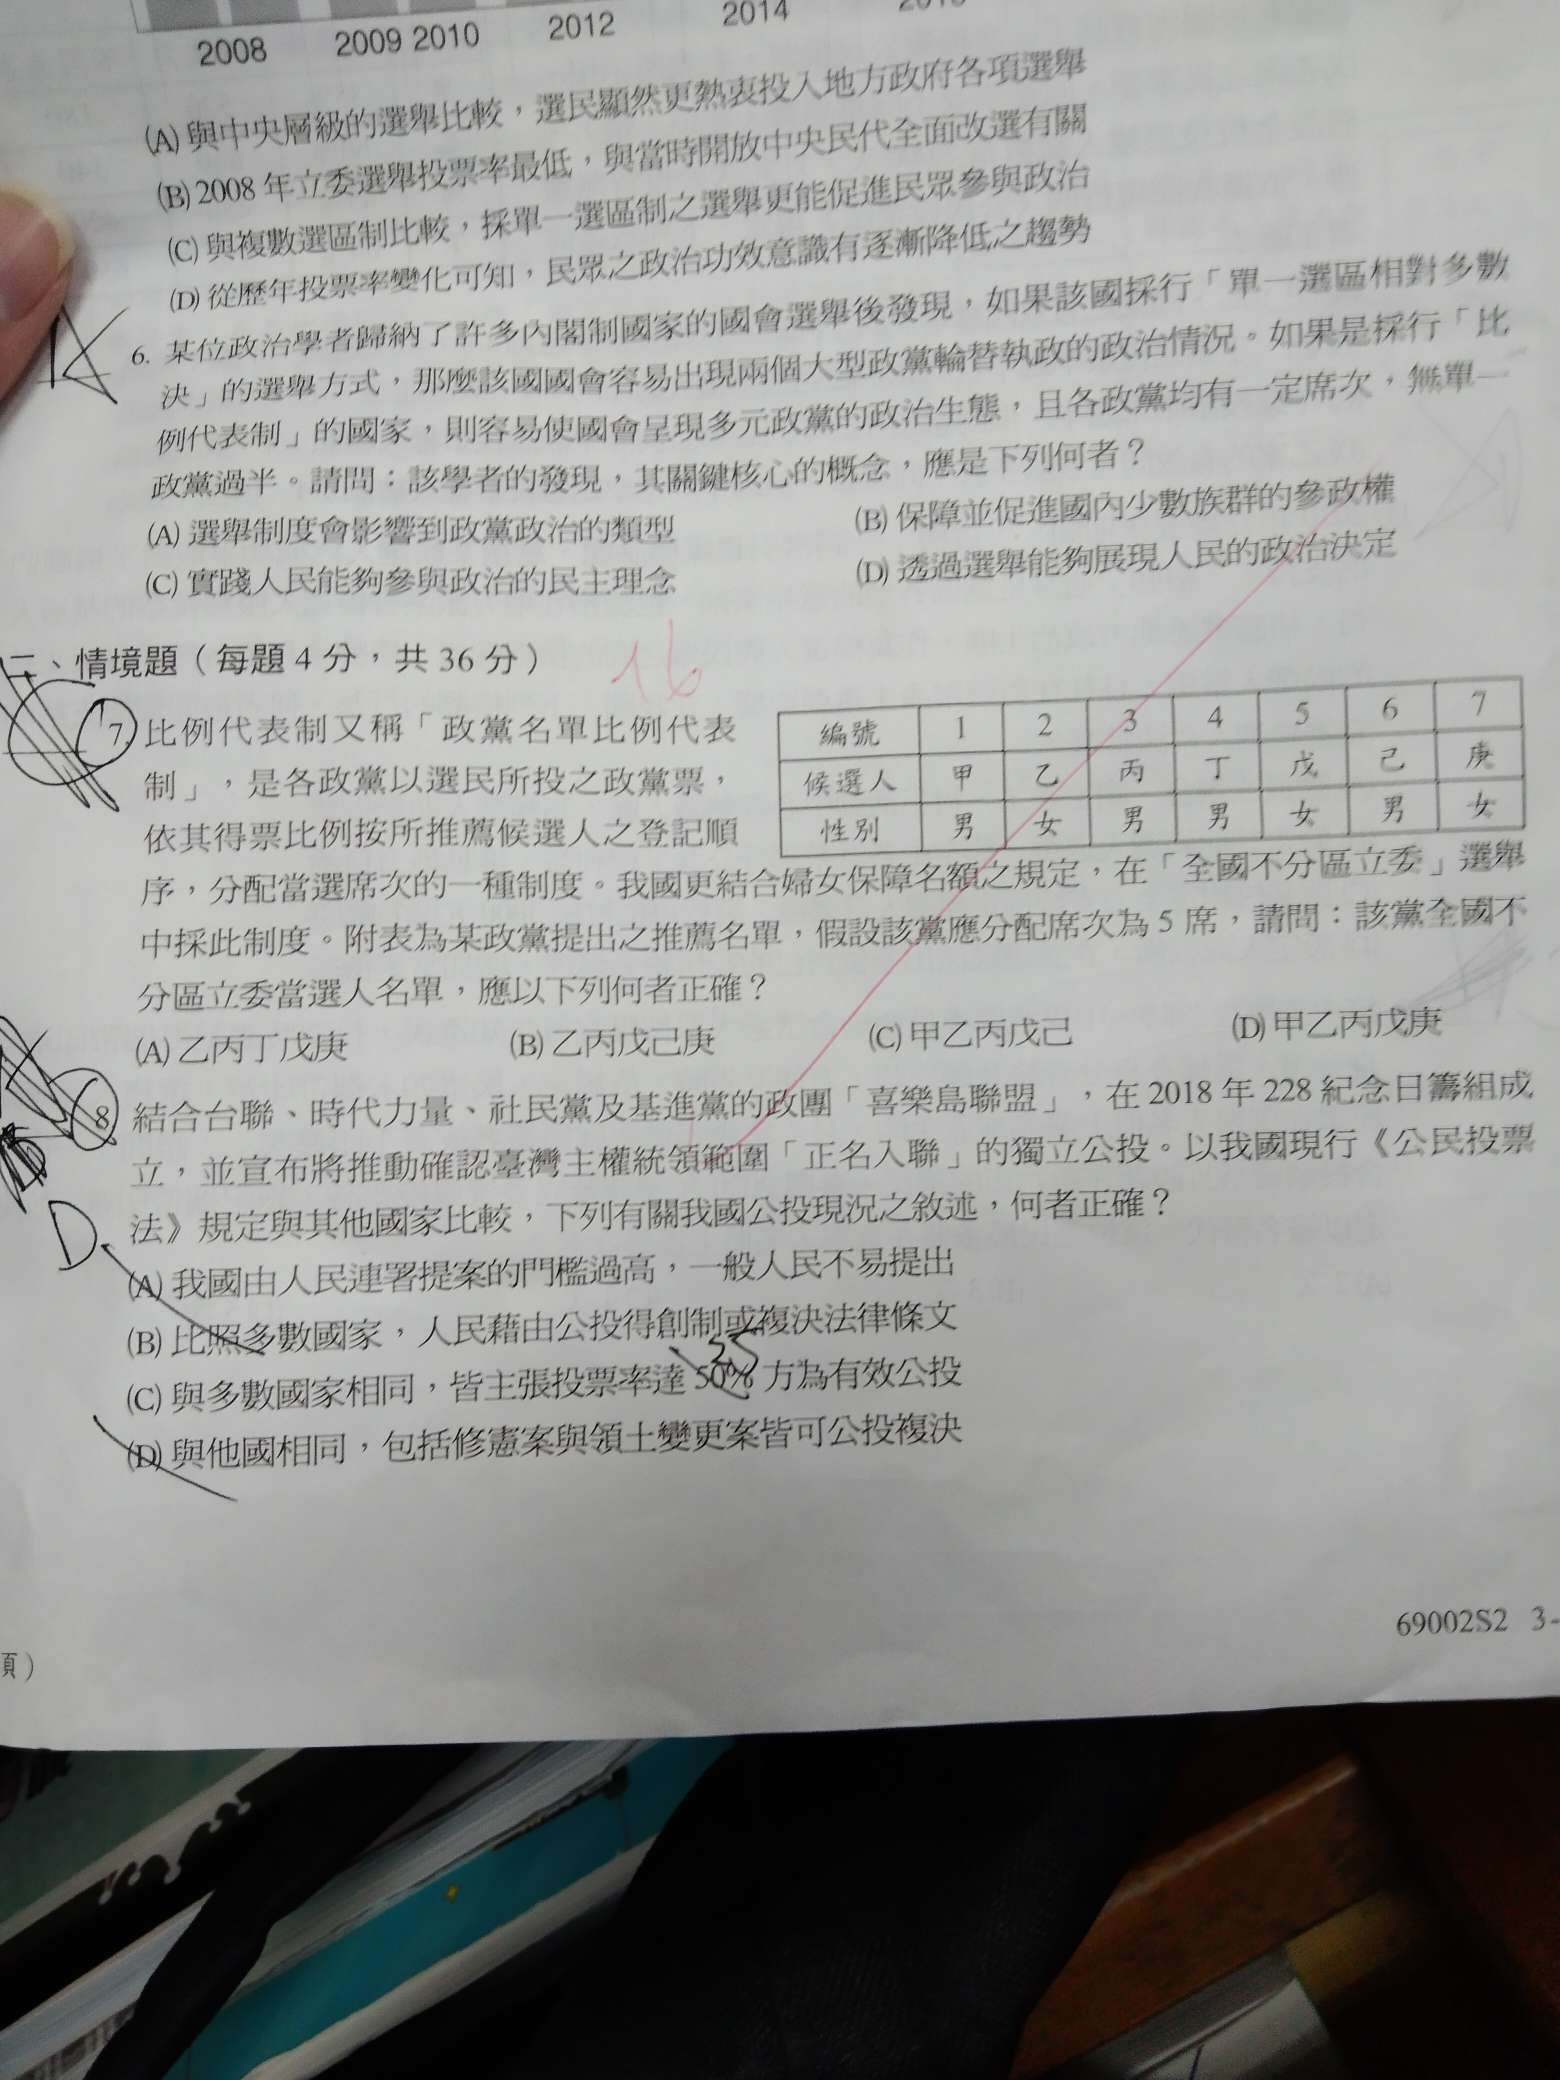 2008 2009 2010 2012 2014
(A) 與中央層級的選舉比較，選民顯然更熱衷投入地方政府各項選舉
(B) 2008 年立委選舉投票率最低，與當時開放中央民代全面改選有關
(C) 與複數選區制比較，採單一選區制之選舉更能促進民眾參與政治
(D) 從歷年投票率變化可知，民眾之政治功效意識有逐漸降低之趨勢
6. 某位政治學者歸納了許多內閣制國家的國會選舉後發現，如果該國採行「單一選區相對多數
決」的選舉方式，那麼該國國會容易出現兩個大型政黨輪替執政的政治情況。如果是採行「比
例代表制」的國家，則容易使國會呈現多元政黨的政治生態，且各政黨均有一定席次，無單一
政黨過半。請問：該學者的發現，其關鍵核心的概念，應是下列何者？
(A) 選舉制度會影響到政黨政治的類型 (B) 保障並促進國內少數族群的參政權
(C) 實踐人民能夠參與政治的民主理念 (D) 透過選舉能夠展現人民的政治決定
二、情境題（每題 4 分，共 36 分）
16
7 比例代表制又稱「政黨名單比例代表
制」，是各政黨以選民所投之政黨票，
依其得票比例按所推薦候選人之登記順
編號 1 2 3 4 5 6 7
候選人 甲 乙 丙 丁 戊 己 庚
性別 男 女 男 男 女 男 女
序，分配當選席次的一種制度。我國更結合婦女保障名額之規定，在「全國不分區立委」選舉
中採此制度。附表為某政黨提出之推薦名單，假設該黨應分配席次為 5 席，請問：該黨全國不
分區立委當選人名單，應以下列何者正確？
(A) 乙丙丁戊庚 (B) 乙丙戊己庚 (C) 甲乙丙戊己 (D) 甲乙丙戊庚
8 結合台聯、時代力量、社民黨及基進黨的政團「喜樂島聯盟」，在 2018 年 228 紀念日籌組成
立，並宣布將推動確認臺灣主權統領範圍「正名入聯」的獨立公投。以我國現行《公民投票
法》規定與其他國家比較，下列有關我國公投現況之敘述，何者正確？
D
(A) 我國由人民連署提案的門檻過高，一般人民不易提出
(B) 比照多數國家，人民藉由公投得創制或複決法律條文
25
(C) 與多數國家相同，皆主張投票率達 50% 方為有效公投
(D) 與他國相同，包括修憲案與領土變更案皆可公投複決
69002S2 3-
頁）